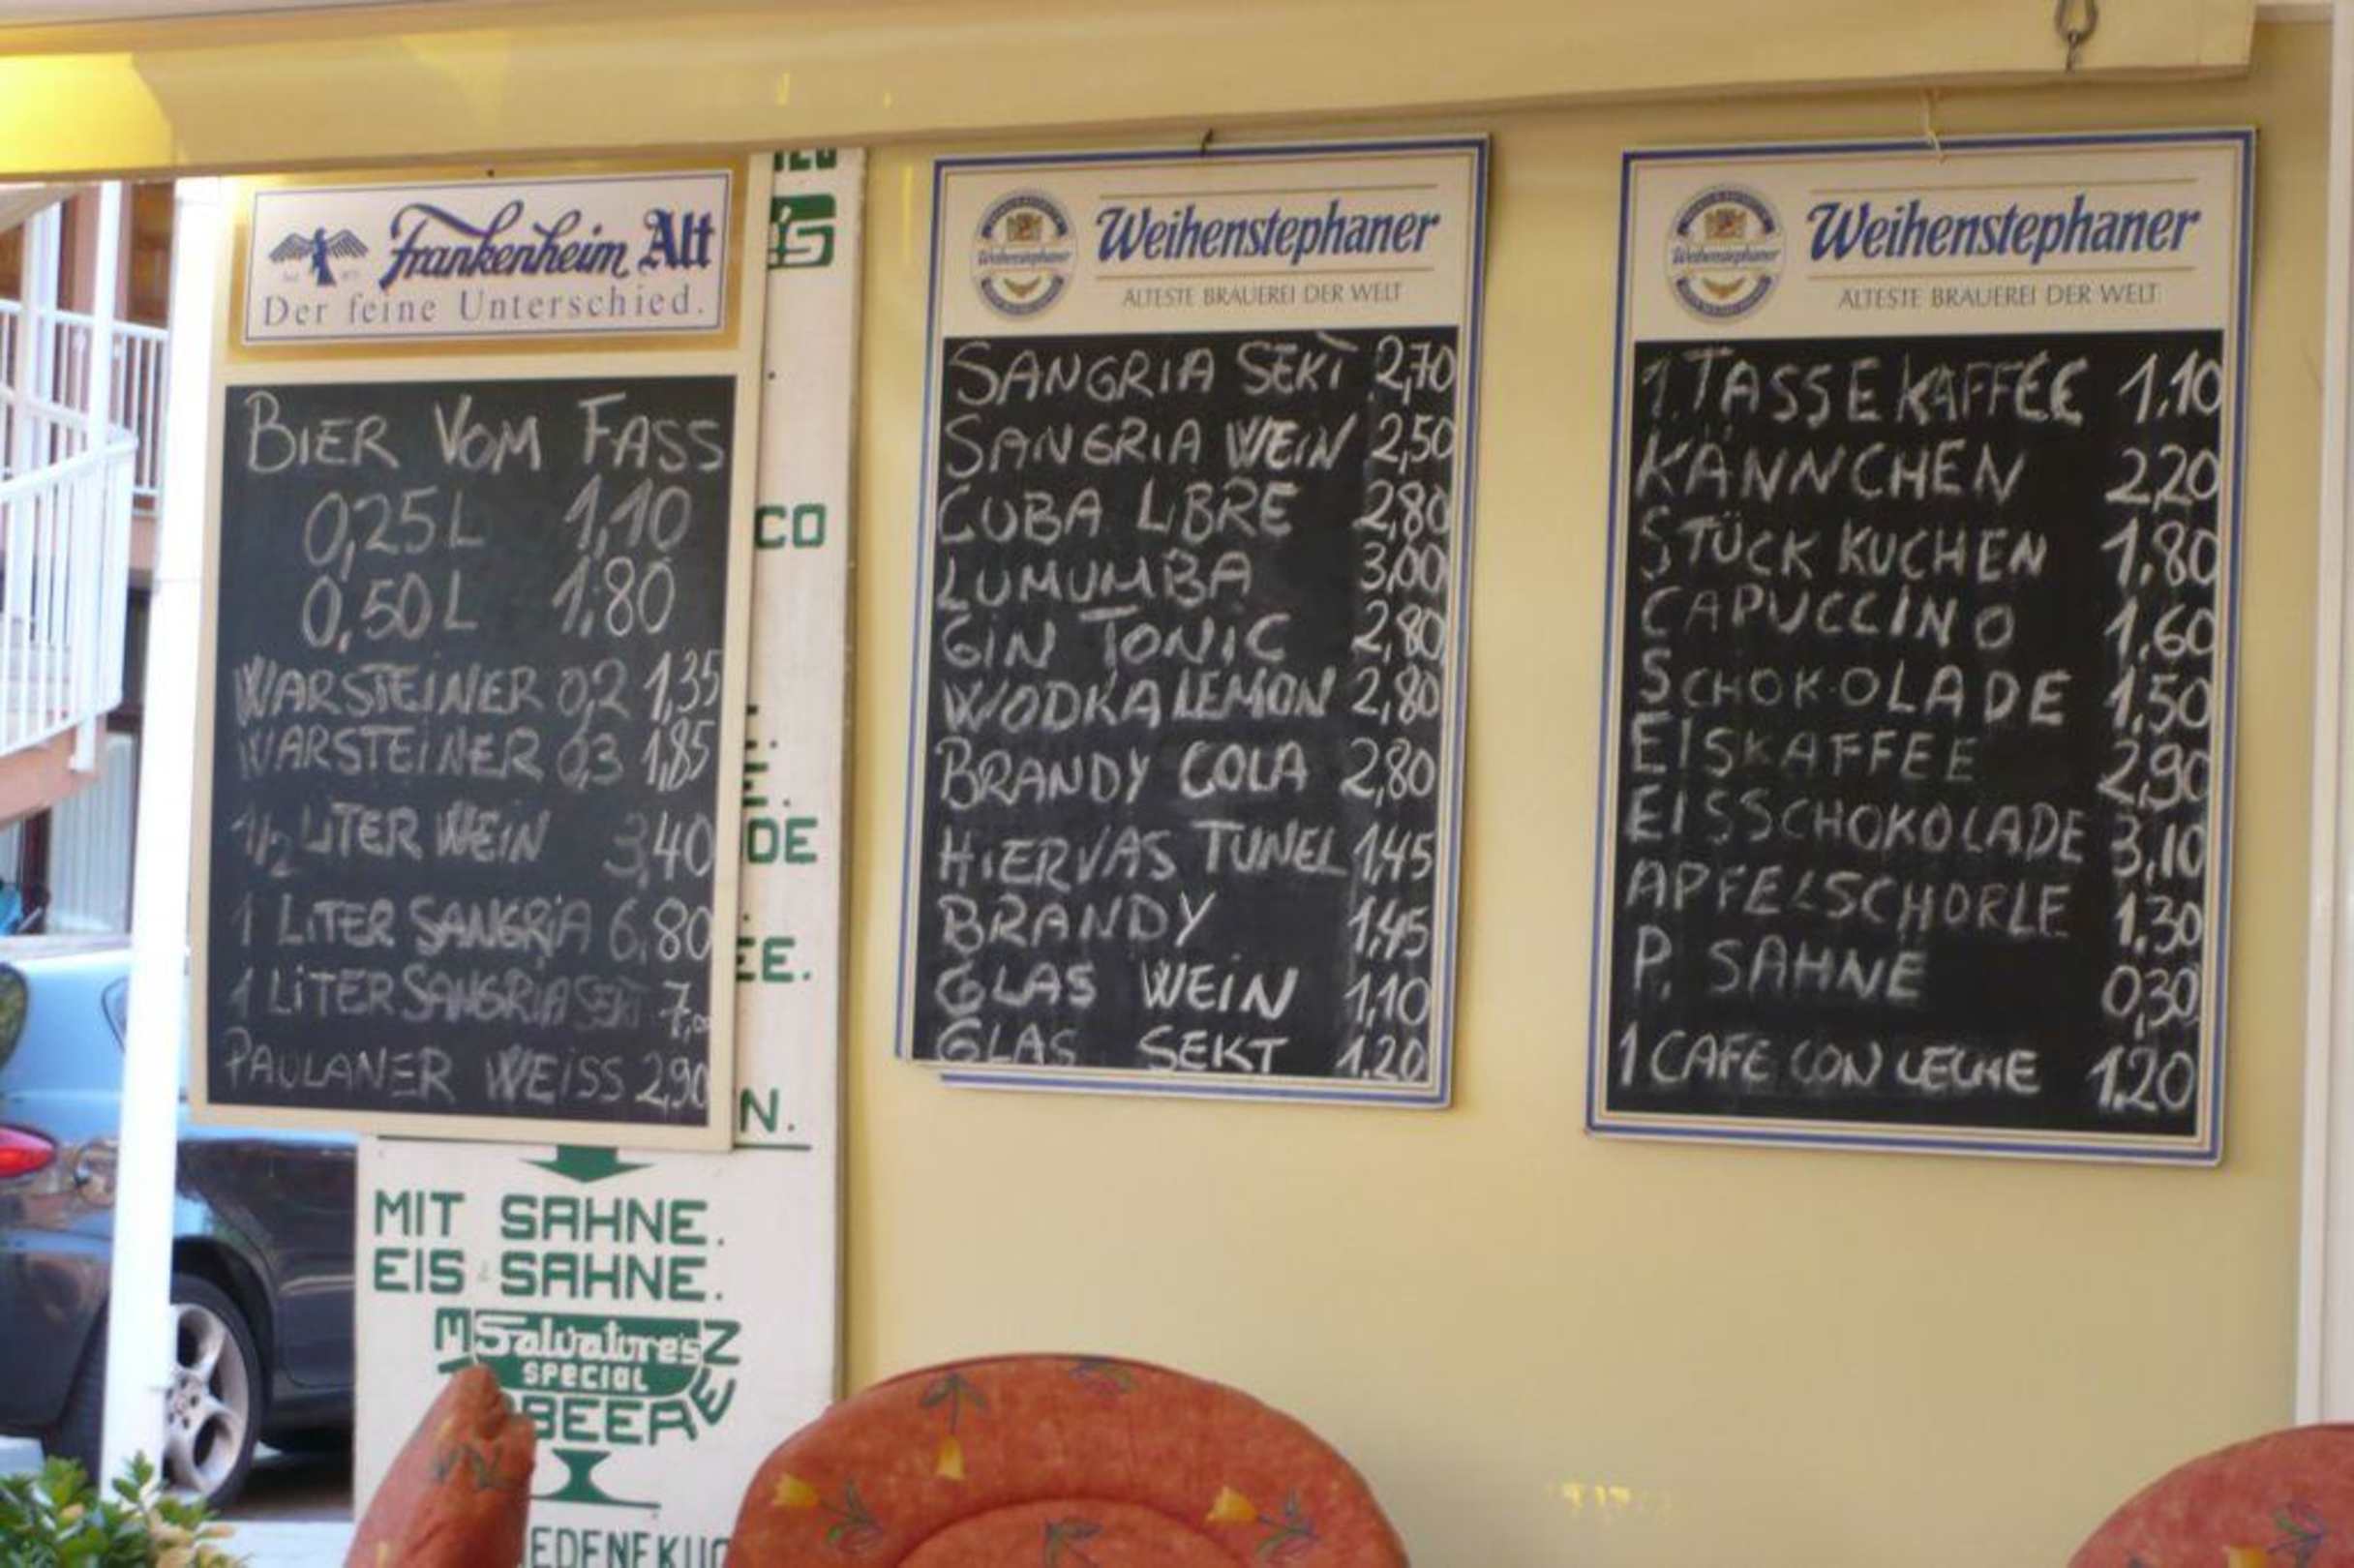 Frankenheim Alt
Der feine Unterschied.
BIER VOM FASS
0,25L 1,10
0,50L 1,80
WARSTEINER 0,2 1,35
WARSTEINER 0,3 1,85
1/2 LITER WEIN 3,40
1 LITER SANGRIA 6,80
1 LITER SANGRIA SEKT 7,00
PAULANER WEISS 2,90
'S
CO
DE
EE.
N.
MIT SAHNE.
EIS SAHNE.
Salvatore's
SPECIAL
Weihenstephaner
ÄLTESTE BRAUEREI DER WELT
SANGRIA SEKT 2,70
SANGRIA WEIN 2,50
CUBA LIBRE 2,80
LUMUMBA 3,00
GIN TONIC 2,80
WODKA LEMON 2,80
BRANDY COLA 2,80
HIERVAS TUNEL 1,45
BRANDY 1,45
GLAS WEIN 1,10
GLAS SEKT 1.20
Weihenstephaner
ÄLTESTE BRAUEREI DER WELT
1.TASSE KAFFEE 1.10
KÄNNCHEN 2,20
STÜCK KUCHEN 1,80
CAPUCCINO 1,60
SCHOKOLADE 1,50
EISKAFFEE 2,90
EISSCHOKOLADE 3,10
APFELSCHORLE 1,30
P. SAHNE 0,30
1 CAFE CON LECHE 1,20